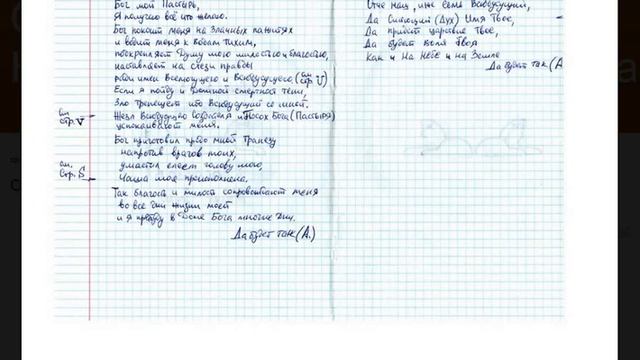 Бог мой Пастырь,
Я получаю всё что желаю.
Бог покоит меня на злачных пажитях
и водит меня к водам тихим,
подкрепляет душу мою милостью и благостью,
наставляет на стези правды
ради имени Всемогущего и Вездесущего (см. стр. V)
Если я пойду и долиной смертной тени,
Зло трепещет ибо Вездесущий со мной.
см. стр. V
Жезл Создателя и Посох Бога (Пастыря)
успокаивают меня.
Бог приготовил предо мной Трапезу
напротив врагов моих,
умастил елеем голову мою,
см. стр. S
Чаша моя преисполнена.
Так благость и милость сопровождают меня
во все дни жизни моей
и я пребуду в Доме Бога многие дни.
Да будет так (А.)
Отче наш, иже еси Вездесущий,
Да Святящий (Дух) Имя Твое,
Да придет царствие Твое,
Да будет воля Твоя
Как и На Небе и на Земле
Да будет так (А